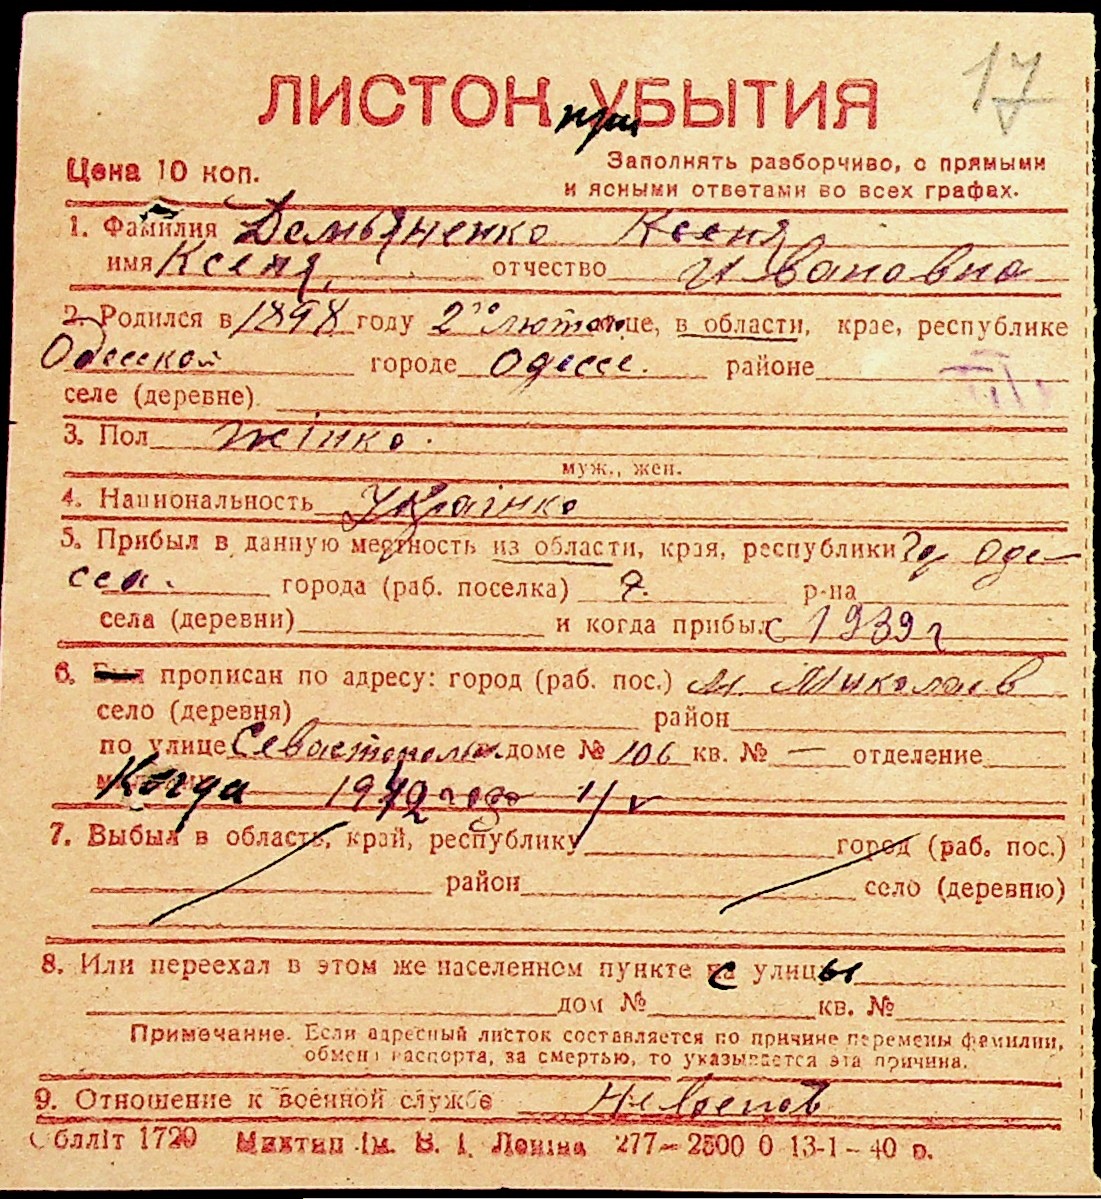 17
ЛИСТОК при УБЫТИЯ
Цена 10 коп.
Заполнять разборчиво, с прямыми
и ясными ответами во всех графах.
1. Фамилия Демьяненко Ксеня
имя Ксеня, отчество Ивановна
2. Родился в 1898 году 2го лютого це, в области, крае, республике
Одесской городе Одессе. районе
селе (деревне)
3. Пол жінка.
муж., жен.
4. Национальность Українка
5. Прибыл в данную местность из области, края, республики Оде-
сса. города (раб. поселка) р-на
села (деревни) и когда прибыл с 1939 г
6. прописан по адресу: город (раб. пос.) м. Миколаев
село (деревня) район
по улице доме № 106 кв. № — отделение
Когда 1942 года
7. Выбыл в область, край, республику город (раб. пос.)
район село (деревню)
8. Или переехал в этом же населенном пункте с улицы
дом № кв. №
Примечание. Если адресный листок составляется по причине перемены фамилии,
обмена паспорта, за смертью, то указывается эта причина.
9. Отношение к военной службе
Обліт 1720 Миктип ім. В. І. Леніна 277—2500 0 13-1-40 р.